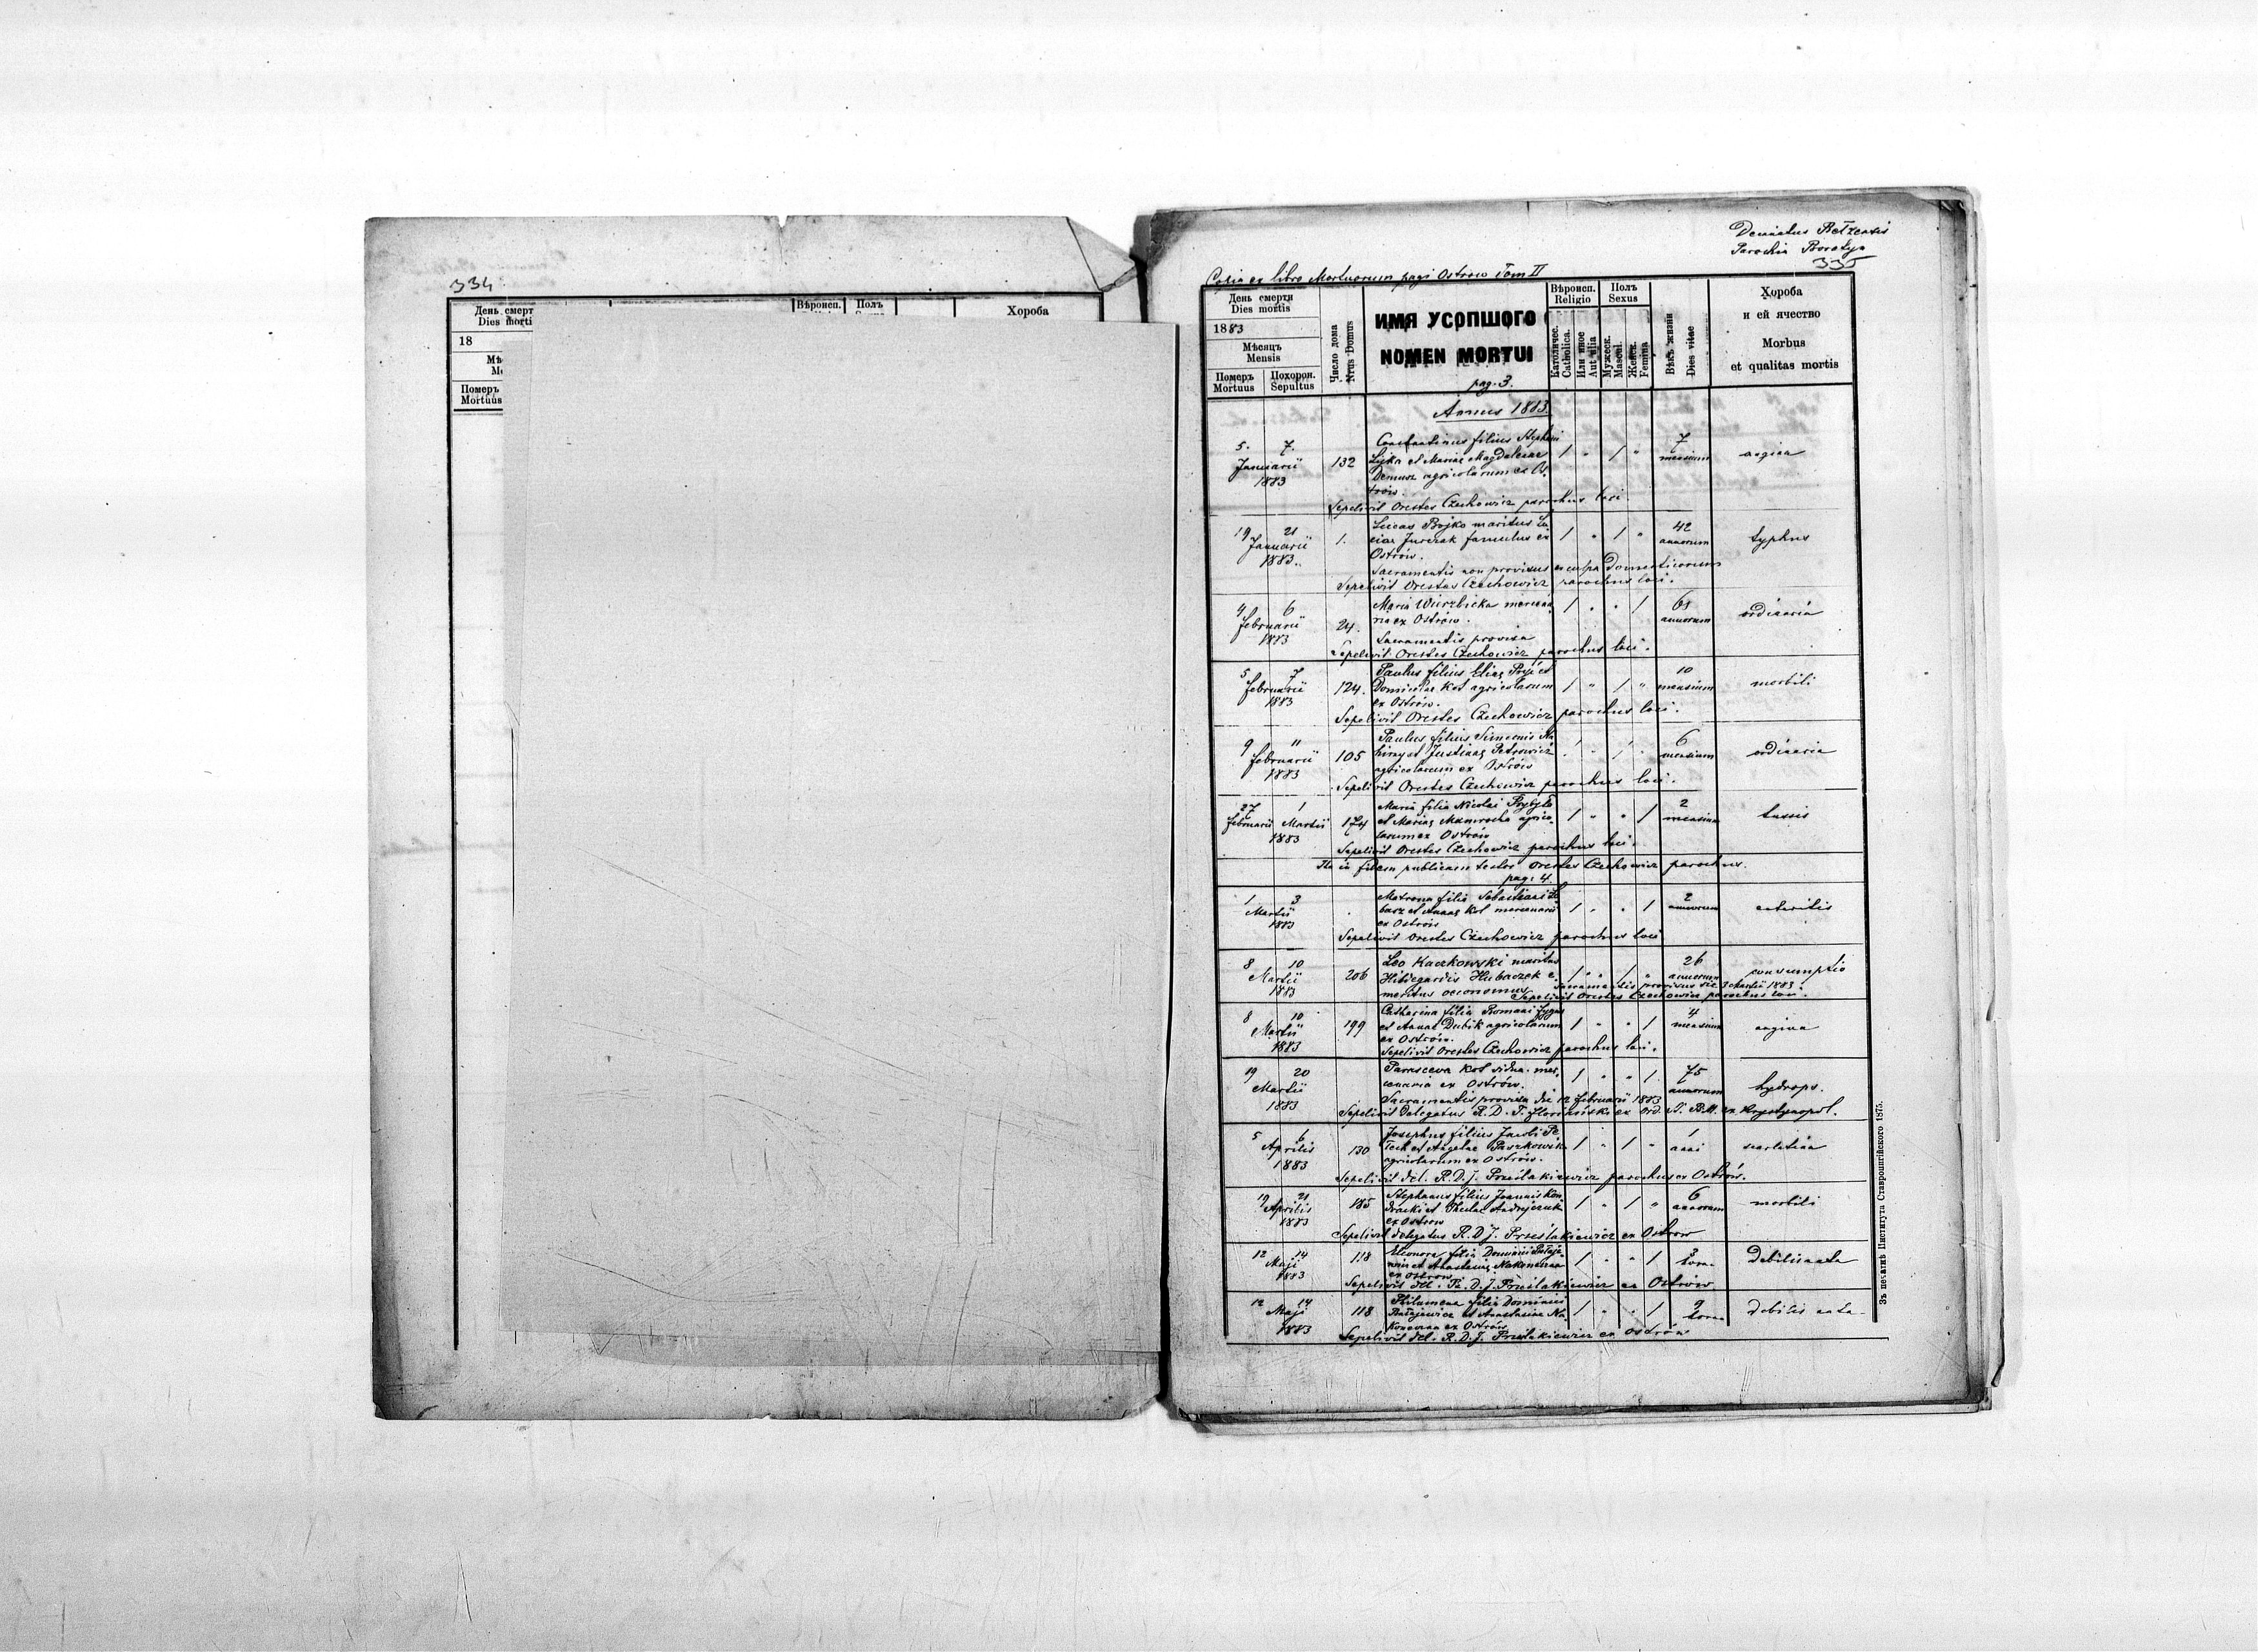 334.
День смерт
Dies morti
18
Померъ
Mortuus
Вѣроисп.
Полъ
Хороба
Decanatus Bełzensis
Parochia Boratyn
335
Copia ex libro Mortuorum pagi Ostrow Tom II
День смерти
Dies mortis
1883
Мѣсяцъ
Mensis
Померъ
Mortuus
Похорон.
Sepultus
Число дома
Nrus Domus
ИМЯ УСОПШОГО
NOMEN MORTUI
pag. 3.
Вѣроисп.
Religio
Католичес.
Catholica.
Или иное
Aut alia
Полъ
Sexus
Мужеск.
Mascul.
Женск.
Femina
Вѣкъ жизни
Dies vitae
Хороба
и ей ячество
Morbus
et qualitas mortis
Annus 1883.
5. 7. Januarii 1883
132
Constantinus filius Stephani
et Mariae Magdalenae
Demusz agricolarum ex Os-
trów.
1 " 1 "
7 mensium
angina
Sepelivit Orestes Czechowicz parochus loci.
19 21 Januarii 1883.
1.
Lucas Bojko maritus Lu-
ciae Jurczak famulus ex
Ostrów.
1 " 1 "
42 annorum
typhus
Sacramentis non provisus ex culpa Domesticorum
Sepelivit Orestes Czechowicz parochus loci.
4 6 Februarii 1883
24.
Maria Wierzbicka mercena-
ria ex Ostrów.
1 " " 1
annorum
ordinaria
Sacramentis provisa
Sepelivit Orestes Czechowicz parochus loci.
5 7 Februarii 1883
124.
Paulus filius Eliae et
Kot agricolarum
ex Ostrów.
1 " 1 "
10 mensium
morbili
Sepelivit Orestes Czechowicz parochus loci.
9 11 Februarii 1883
105
Paulus filius Simeonis
et Justinae Petrowicz
agricolarum ex Ostrów
1 " 1 "
6 mensium
ordinaria
Sepelivit Orestes Czechowicz parochus loci.
27 Februarii 1 Martii 1883
Maria filia Nicolai
et Mariae agrico-
larum ex Ostrów
1 " " 1
2 mensium
tussis
Sepelivit Orestes Czechowicz parochus loci.
In fidem publicam testor Orestes Czechowicz parochus.
pag. 4.
1 3 Martii 1883
Matrona filia Sebastiani
et Annae Kot
ex Ostrów
1 " " 1
2 annorum
enteritis
Sepelivit Orestes Czechowicz parochus loci
8 10 Martii 1883
206
Leo Kaczkowski maritus
Hildegardis Hubaczek e-
meritus oeconomus
1 " 1 "
26 annorum
consumptio
Sacramentis provisus die 3 Martii 1883.
Sepelivit Orestes Czechowicz parochus loci.
8 10 Martii 1883
199
Catharina filia Romani
et Annae Dubik agricolarum
ex Ostrów.
1 " " 1
4 mensium
angina
Sepelivit Orestes Czechowicz parochus loci.
19 20 Martii 1883
Parasceva Kot vidua mer-
cenaria ex Ostrów.
1 " " 1
75 annorum
hydrops.
Sacramentis provisa die 12 Februarii 1883
Sepelivit delegatus R. D. ex Ord. S. B. M. ex Krystynopol.
5 6 Aprilis 1883
130
Josephus filius Jacobi
et Angelae
agricolarum ex Ostrów.
1 " 1 "
1 anni
scarlatina
Sepelivit del. R. D. J. Prześlakiewicz parochus ex Ostrów.
19 21 Aprilis 1883
185
Stephanus filius Joannis Kon-
dracki et Theclae Andrejczuk
ex Ostrów
1 " 1 "
6 annorum
morbili
Sepelivit delegatus R. D. J. Prześlakiewicz ex Ostrów
12 14 Maji 1883
118
Eleonora filia Dominici
et Anastasiae
ex Ostrów
1 " " 1
hora.
Debilis nata
Sepelivit del. R. D. J. Prześlakiewicz ex Ostrów.
12 14 Maji 1883
118
Philumena filia Dominici
et Anastasiae
ex Ostrów
1 " " 1
horae
debilis nata.
Sepelivit del. R. D. J. Prześlakiewicz ex Ostrów
Зъ печатнѣ Института Ставропигійского 1875.